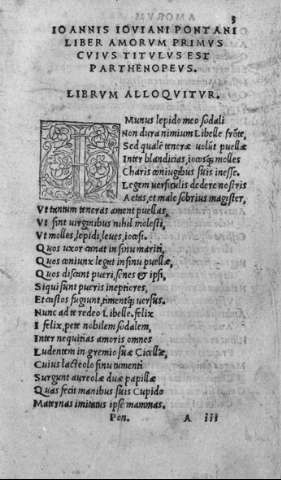 3
IOANNIS IOVIANI PONTANI
LIBER AMORUM PRIMUS
CVIVS TITVLVS EST
PARTHENOPEVS.
LIBRVM ALLOQVITVR.
I Munus lepido meo sodali
Non dura nimium Libelle frõte,
Sed qualẽ teneræ uolũt puellæ
Inter blandicias, iocosq; molles
Charis cõniugibus suis inesse.
Legem uersiculis dedere nostris
Aetas, et male sobrius magister,
Vt tantum teneras ament puellas,
Vt sint uirginibus nihil molesti,
Vt molles, lepidi, leues, iocosi.
Quos uxor canat in sinu mariti,
Quos cõniunx legat in sinu puellæ,
Quos discant pueri, senes & ipsi,
Siqui sunt pueris ineptiores,
Et castos fugiunt, timentq; uersus.
Nunc ad te redeo Libelle. felix
I felix, pete nobilem sodalem,
Inter nequitias amoris omnes
Ludentem in gremio suæ Cicellæ,
Cuius lacteolo sinu tumenti
Surgunt aureolæ duæ papillæ
Quas fecit manibus suis Cupido
Maternas imitatus ipse mammas.
Pon. A iii